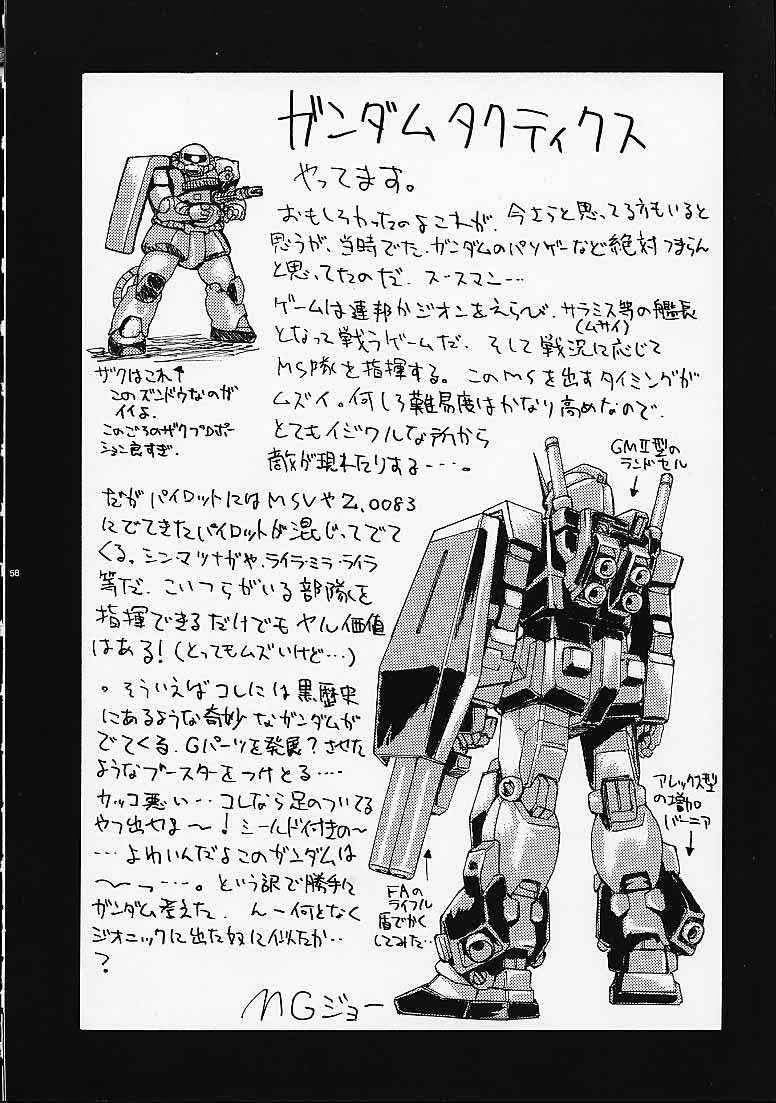 ガンダムタクティクス
やってます。
おもしろかったのよこれが、今さらと思ってる方もいると
思うが、当時でた、ガンダムのパソゲーなど絶対つまらん
と思ってたのだ、スースマン…
ゲームは連邦かジオンをえらび、サラミス等の艦長
(ムサイ)
となって戦うゲームだ、そして戦況に応じて
MS隊を指揮する。このMSを出すタイミングが
ムズイ。何しろ難易度はかなり高めなので、
とてもイジワルな所から
敵が現れたりする…。
ザクはこれ↑
このズンドウなのが
イイよ.
このごろのザクプロポー
ション良すぎ.
GMⅡ型の
ランドセル
だがパイロットにはMSVやZ,0083
にでてきたパイロットが混じってでて
くる。シンマツナガや、ライラ・ミラ・ライラ
等だ、こいつらがいる部隊を
指揮できるだけでもヤル価値
はある!(とってもムズいけど…)
。そういえばコレには黒歴史
にあるような奇妙なガンダムが
でてくる、Gパーツを発展?させた
ようなブースターをつけとる…
カッコ悪い…コレなら足のついてる
やつ出せよ〜!シールド付きの〜
…よわいんだよこのガンダムは
〜っ…。という訳で勝手に
ガンダム考えた、んー何となく
ジオニックに出た奴に似たか…
?
アレックス型
の増加
バーニア
FAの
ライフル
盾でかく
してみた…
NGジョー
58